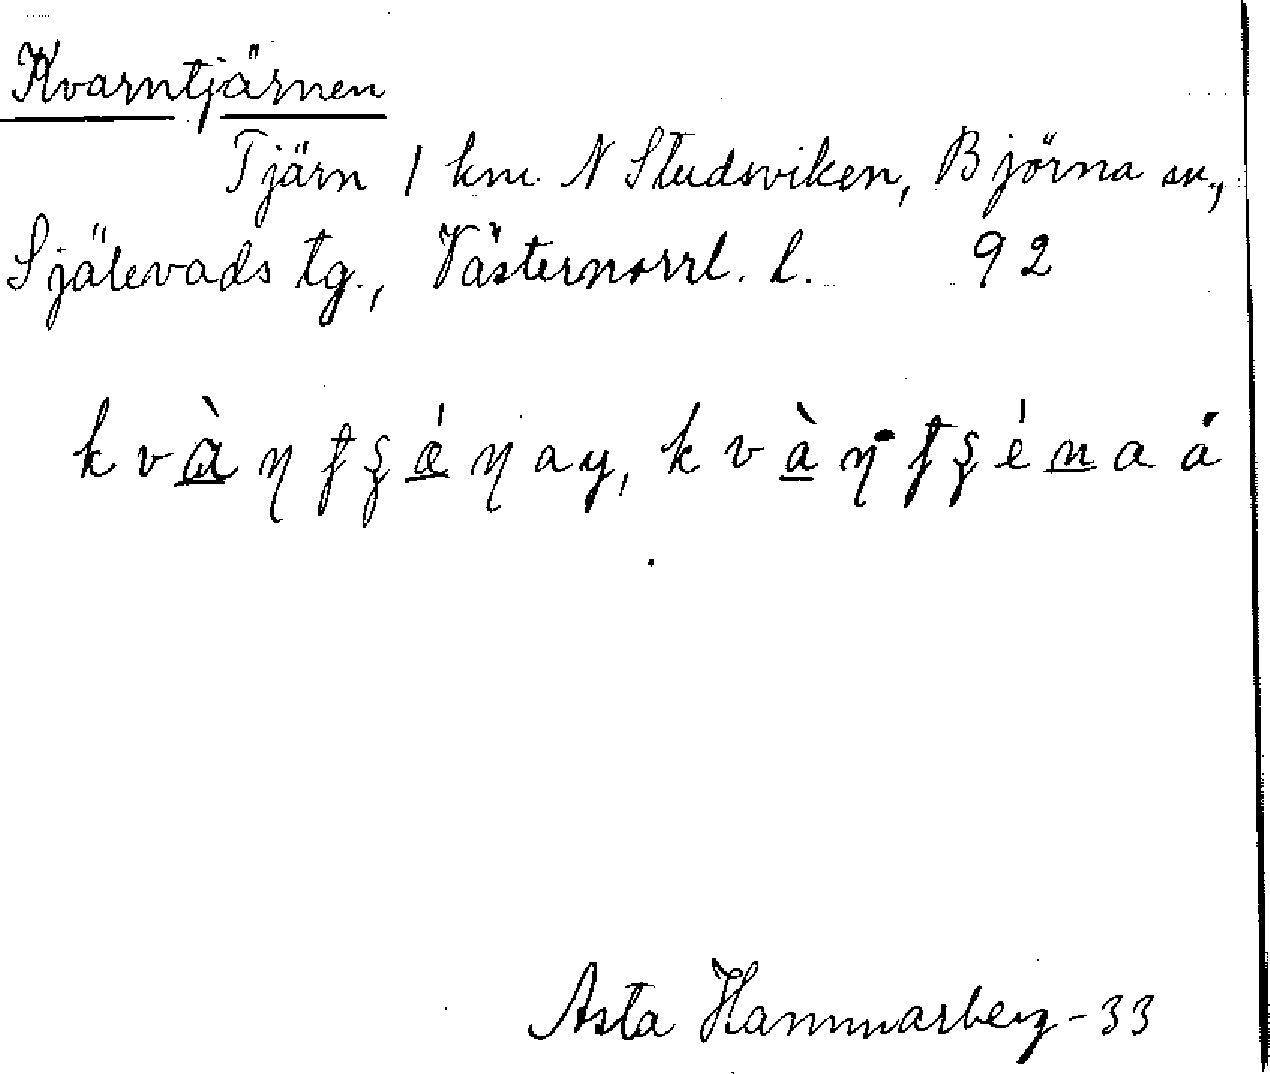 Kvarntjärnen
Tjärn 1 km. N Studsviken, Björna sn.,
Själevads tg., Västernorrl. l. 92
Asta Hammarberg-33